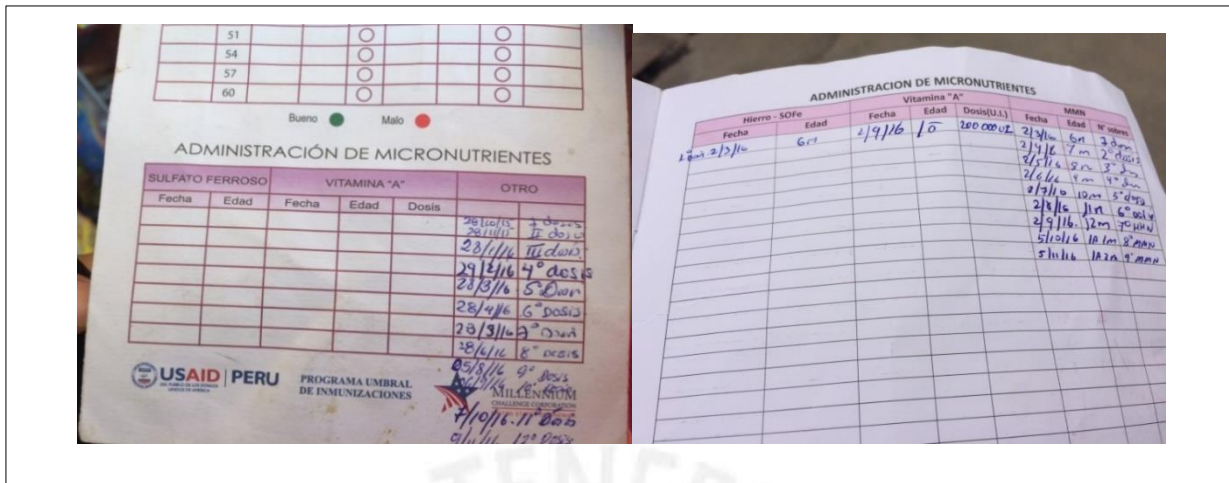 51
54
57
60
Bueno Malo
ADMINISTRACIÓN DE MICRONUTRIENTES
SULFATO FERROSO VITAMINA "A" OTRO
Fecha Edad Fecha Edad Dosis
28/10/15 I dosis
28/11/15 II dosis
28/1/16 III dosis
29/2/16 4° dosis
28/3/16 5° Dosis
28/4/16 6° Dosis
28/5/16 7° Dosis
28/6/16 8° dosis
05/8/16 9° Dosis
10°
7/10/16. 11° Dosis
9/11/16 12° Dosis
USAID PERU
DEL PUEBLO DE LOS ESTADOS
UNIDOS DE AMÉRICA
PROGRAMA UMBRAL
DE INMUNIZACIONES
MILLENNIUM
CHALLENGE CORPORATION
ADMINISTRACION DE MICRONUTRIENTES
Hierro - SOFe Vitamina "A" MMN
Fecha Edad Fecha Edad Dosis(U.I.) Fecha Edad N° sobres
2/3/16 6m 2/9/16 200 000 UI 2/3/16 6m
7m 2° dosis
2/5/16 8m 3°
2/6/16 9m 4°
2/7/16 10m 5° dosis
2/8/16 11m 6° dosis
2/9/16. 12m 7° MMN
5/10/16 1A 1m 8° MMN
5/11/16 1A 2m 9° MMN
TENE